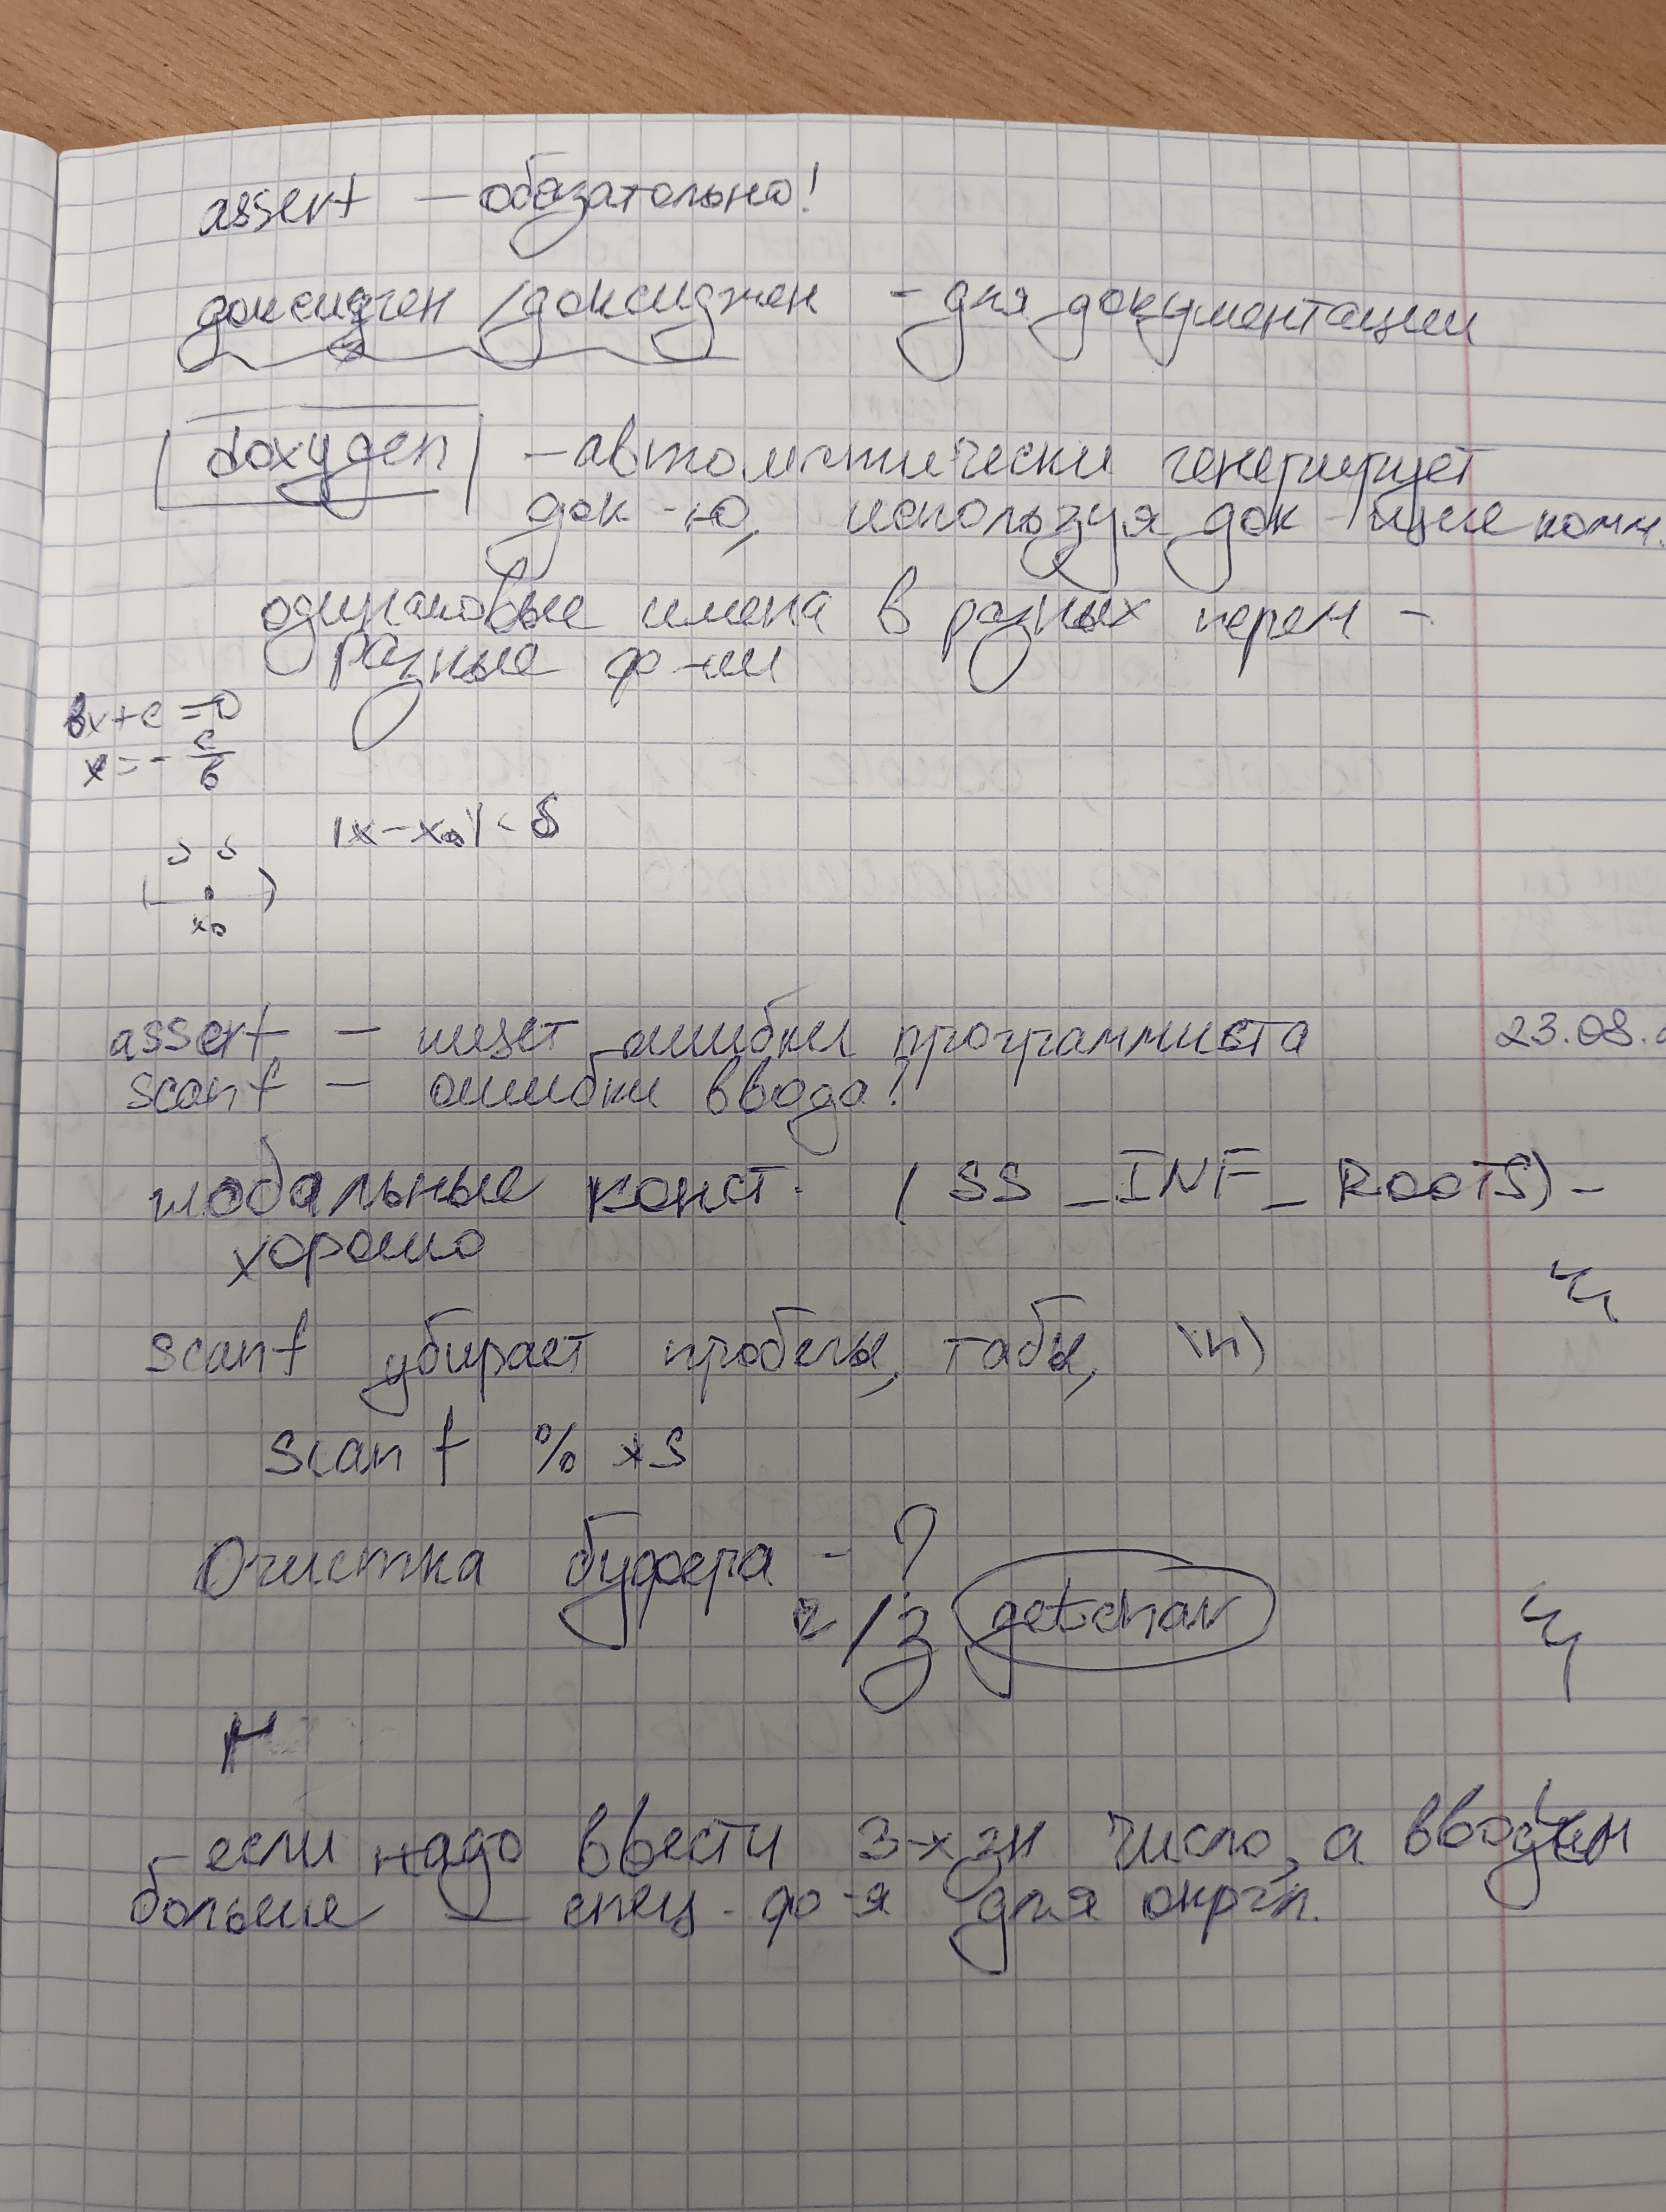 assert — обязательно!
доксиген / доксиджен - для документации
doxygen — автоматически генерирует
док-ю, используя док-щие комм.
одинаковые имена в разных перем -
разные ф-ии
bx+c=0
x=-c/b
|x-x0|<δ
δ δ
( • )
x0
assert — ищет ошибки программиста
23.08.
scanf — ошибки ввода!
глобальные конст. (SS_INF_ROOTS) -
хорошо
scanf убирает пробелы, табы, \n)
scanf %*s
Очистка буфера - ?
ч/з getchar
если надо ввести 3-х зн число, а вводим
больше — спец. ф-я для округл.